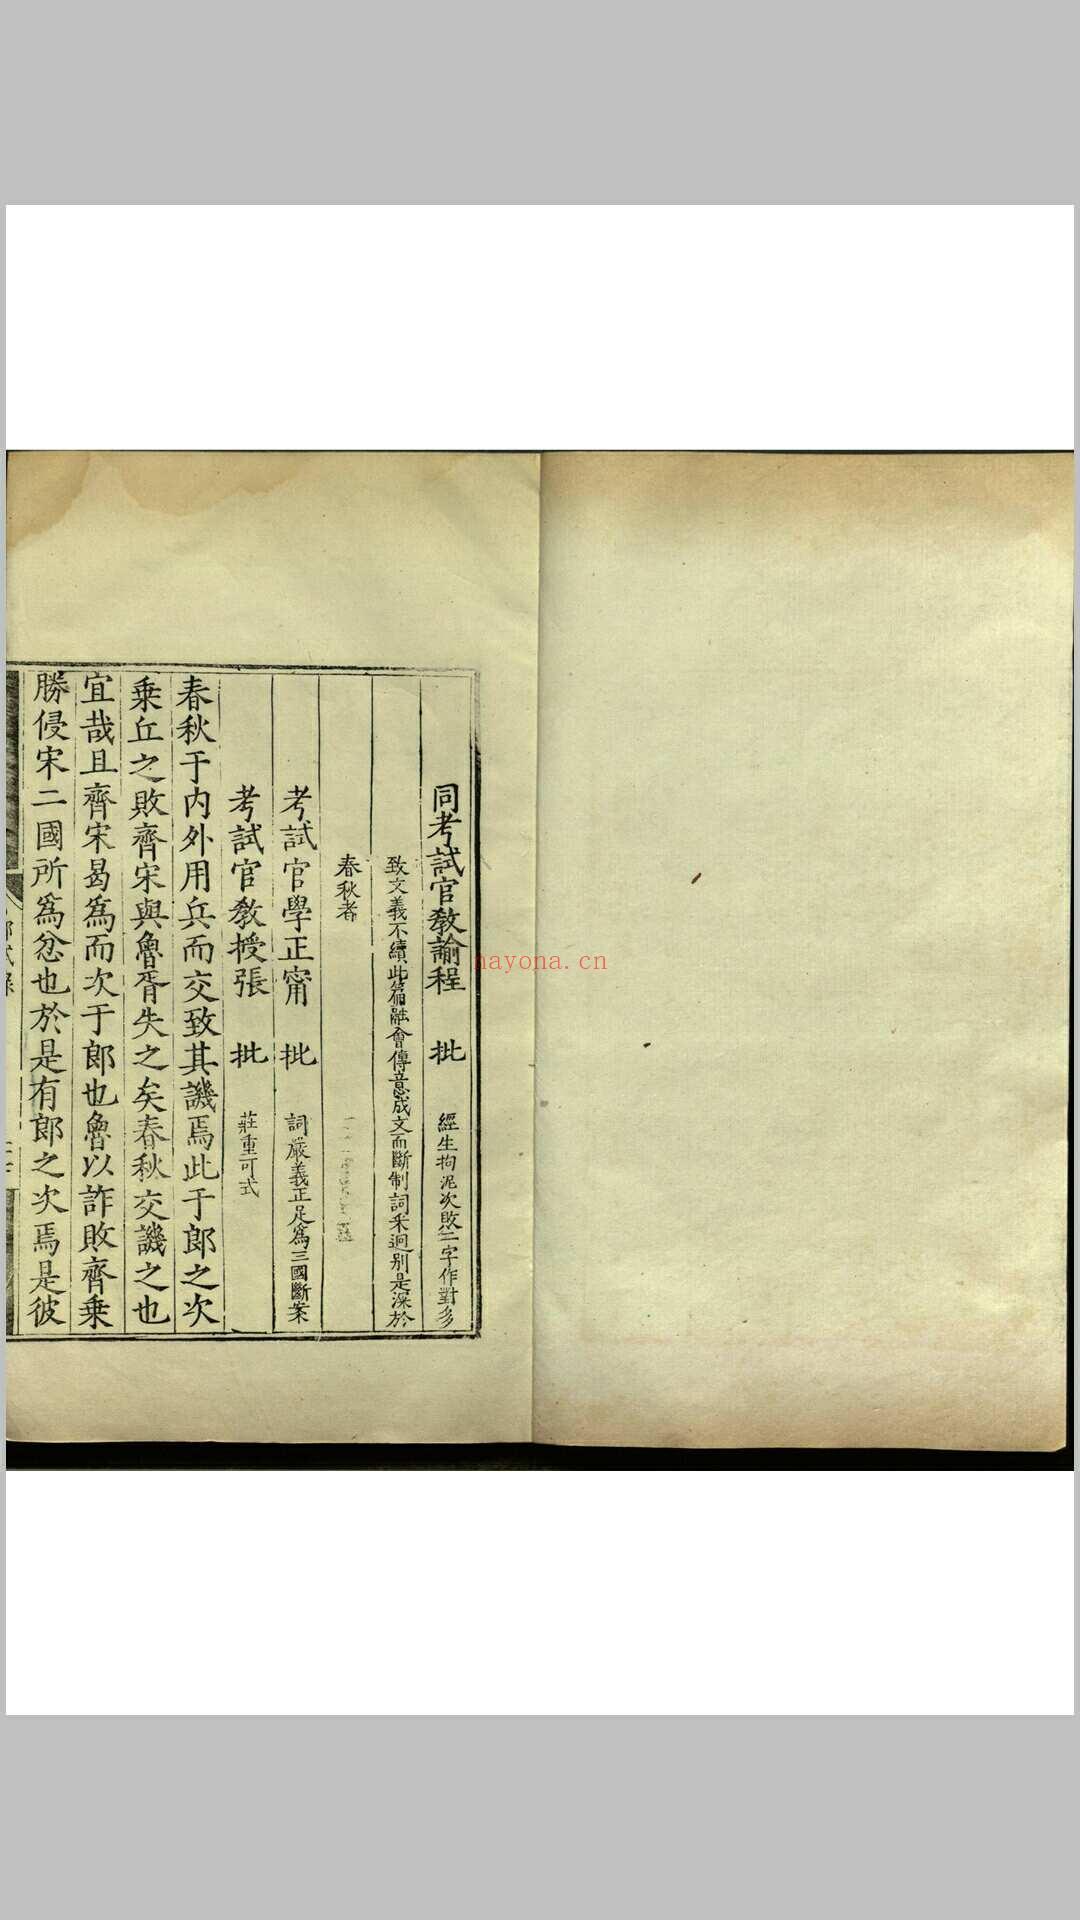 同考試官教諭程 批 經生拘泥次敗二字作對多
致文義不續此篇融會傳意成文而斷制詞采迥别是深於
春秋者
考試官學正甯 批 詞嚴義正足爲三國斷案
考試官教授張 批 莊重可式
春秋于内外用兵而交致其譏焉此于郎之次
乗丘之敗齊宋與魯胥失之矣春秋交譏之也
宜哉且齊宋曷爲而次于郎也魯以詐敗齊乗
勝侵宋二國所爲忿也於是有郎之次焉是彼
nayona.cn